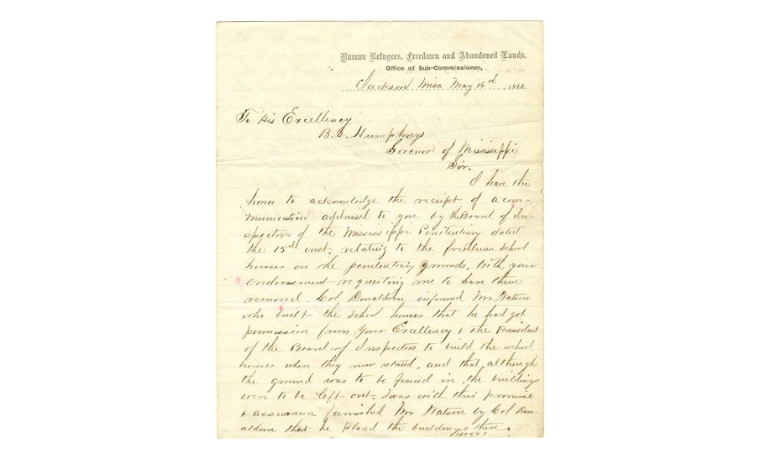 Bureau Refugees, Freedmen and Abandoned Lands.
Office of Sub-Commissioner,
Jackson Miss May 16th 1866
To His Excellency
B. G. Humphreys
Govenor of Mississippi
Sir.
I have the
honor to acknowledge the receipt of a com-
munication addressed to you by the Board of In-
spectors of the Mississippi Penitentiary dated
the 15th inst. relating to the freedmen school
houses on the penitentiary grounds. With your
endorsement requesting me to have them
removed. Col Donaldson informed Mr Watson
who built the school houses that he had got
permission from Your Excellency & the President
of the Board of Inspectors to build the school
houses where they now stand, and that although
the ground was to be fenced in, the buildings
were to be left out. It was with this promise
& assurance furnished Mr Watson by Col Don-
aldson that he placed the buildings there